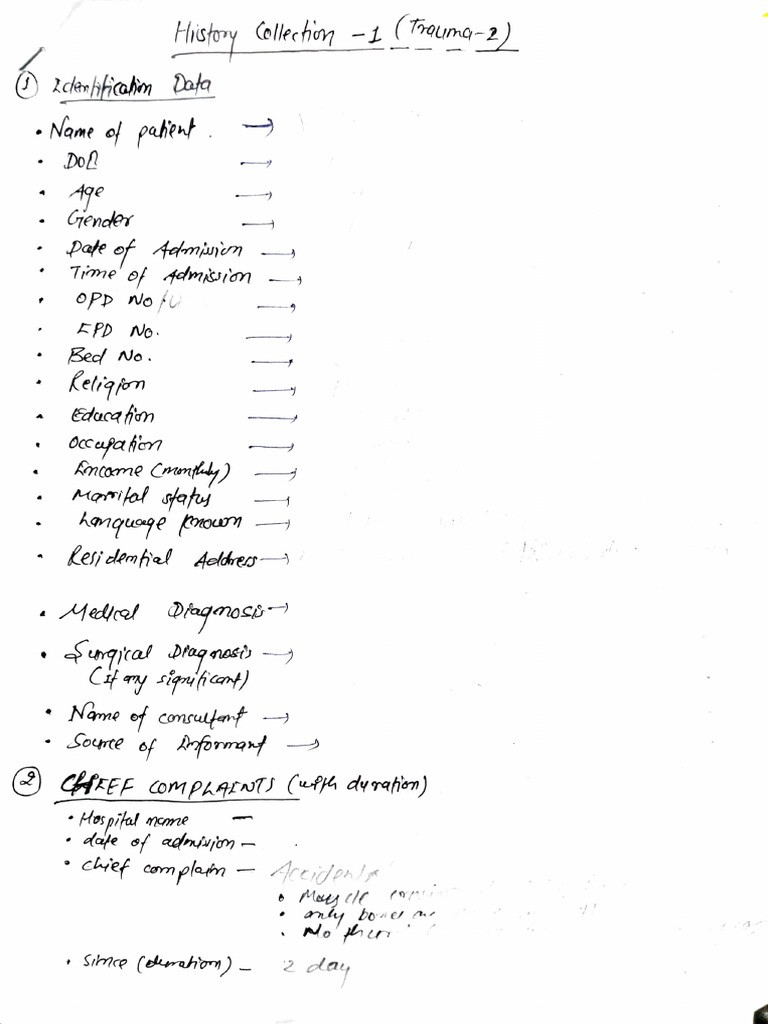 History Collection - 1 (Trauma-2)
① Identification Data
• Name of patient. →
• DOB →
• Age →
• Gender →
• Date of Admission →
• Time of Admission →
• OPD No →
• IPD No. →
• Bed No. →
• Religion →
• Education →
• Occupation →
• Income (monthly) →
• Marrital status →
• Language known →
• Residential Address →
• Medical Diagnosis →
• Surgical Diagnosis →
(If any significant)
• Name of consultant →
• Source of Informant →
② CHIEF COMPLAINTS (with duration)
• Hospital name —
• date of admission —
• chief complain — Accident
• Muscle
• only bones
• No
• Since (duration) — 2 day